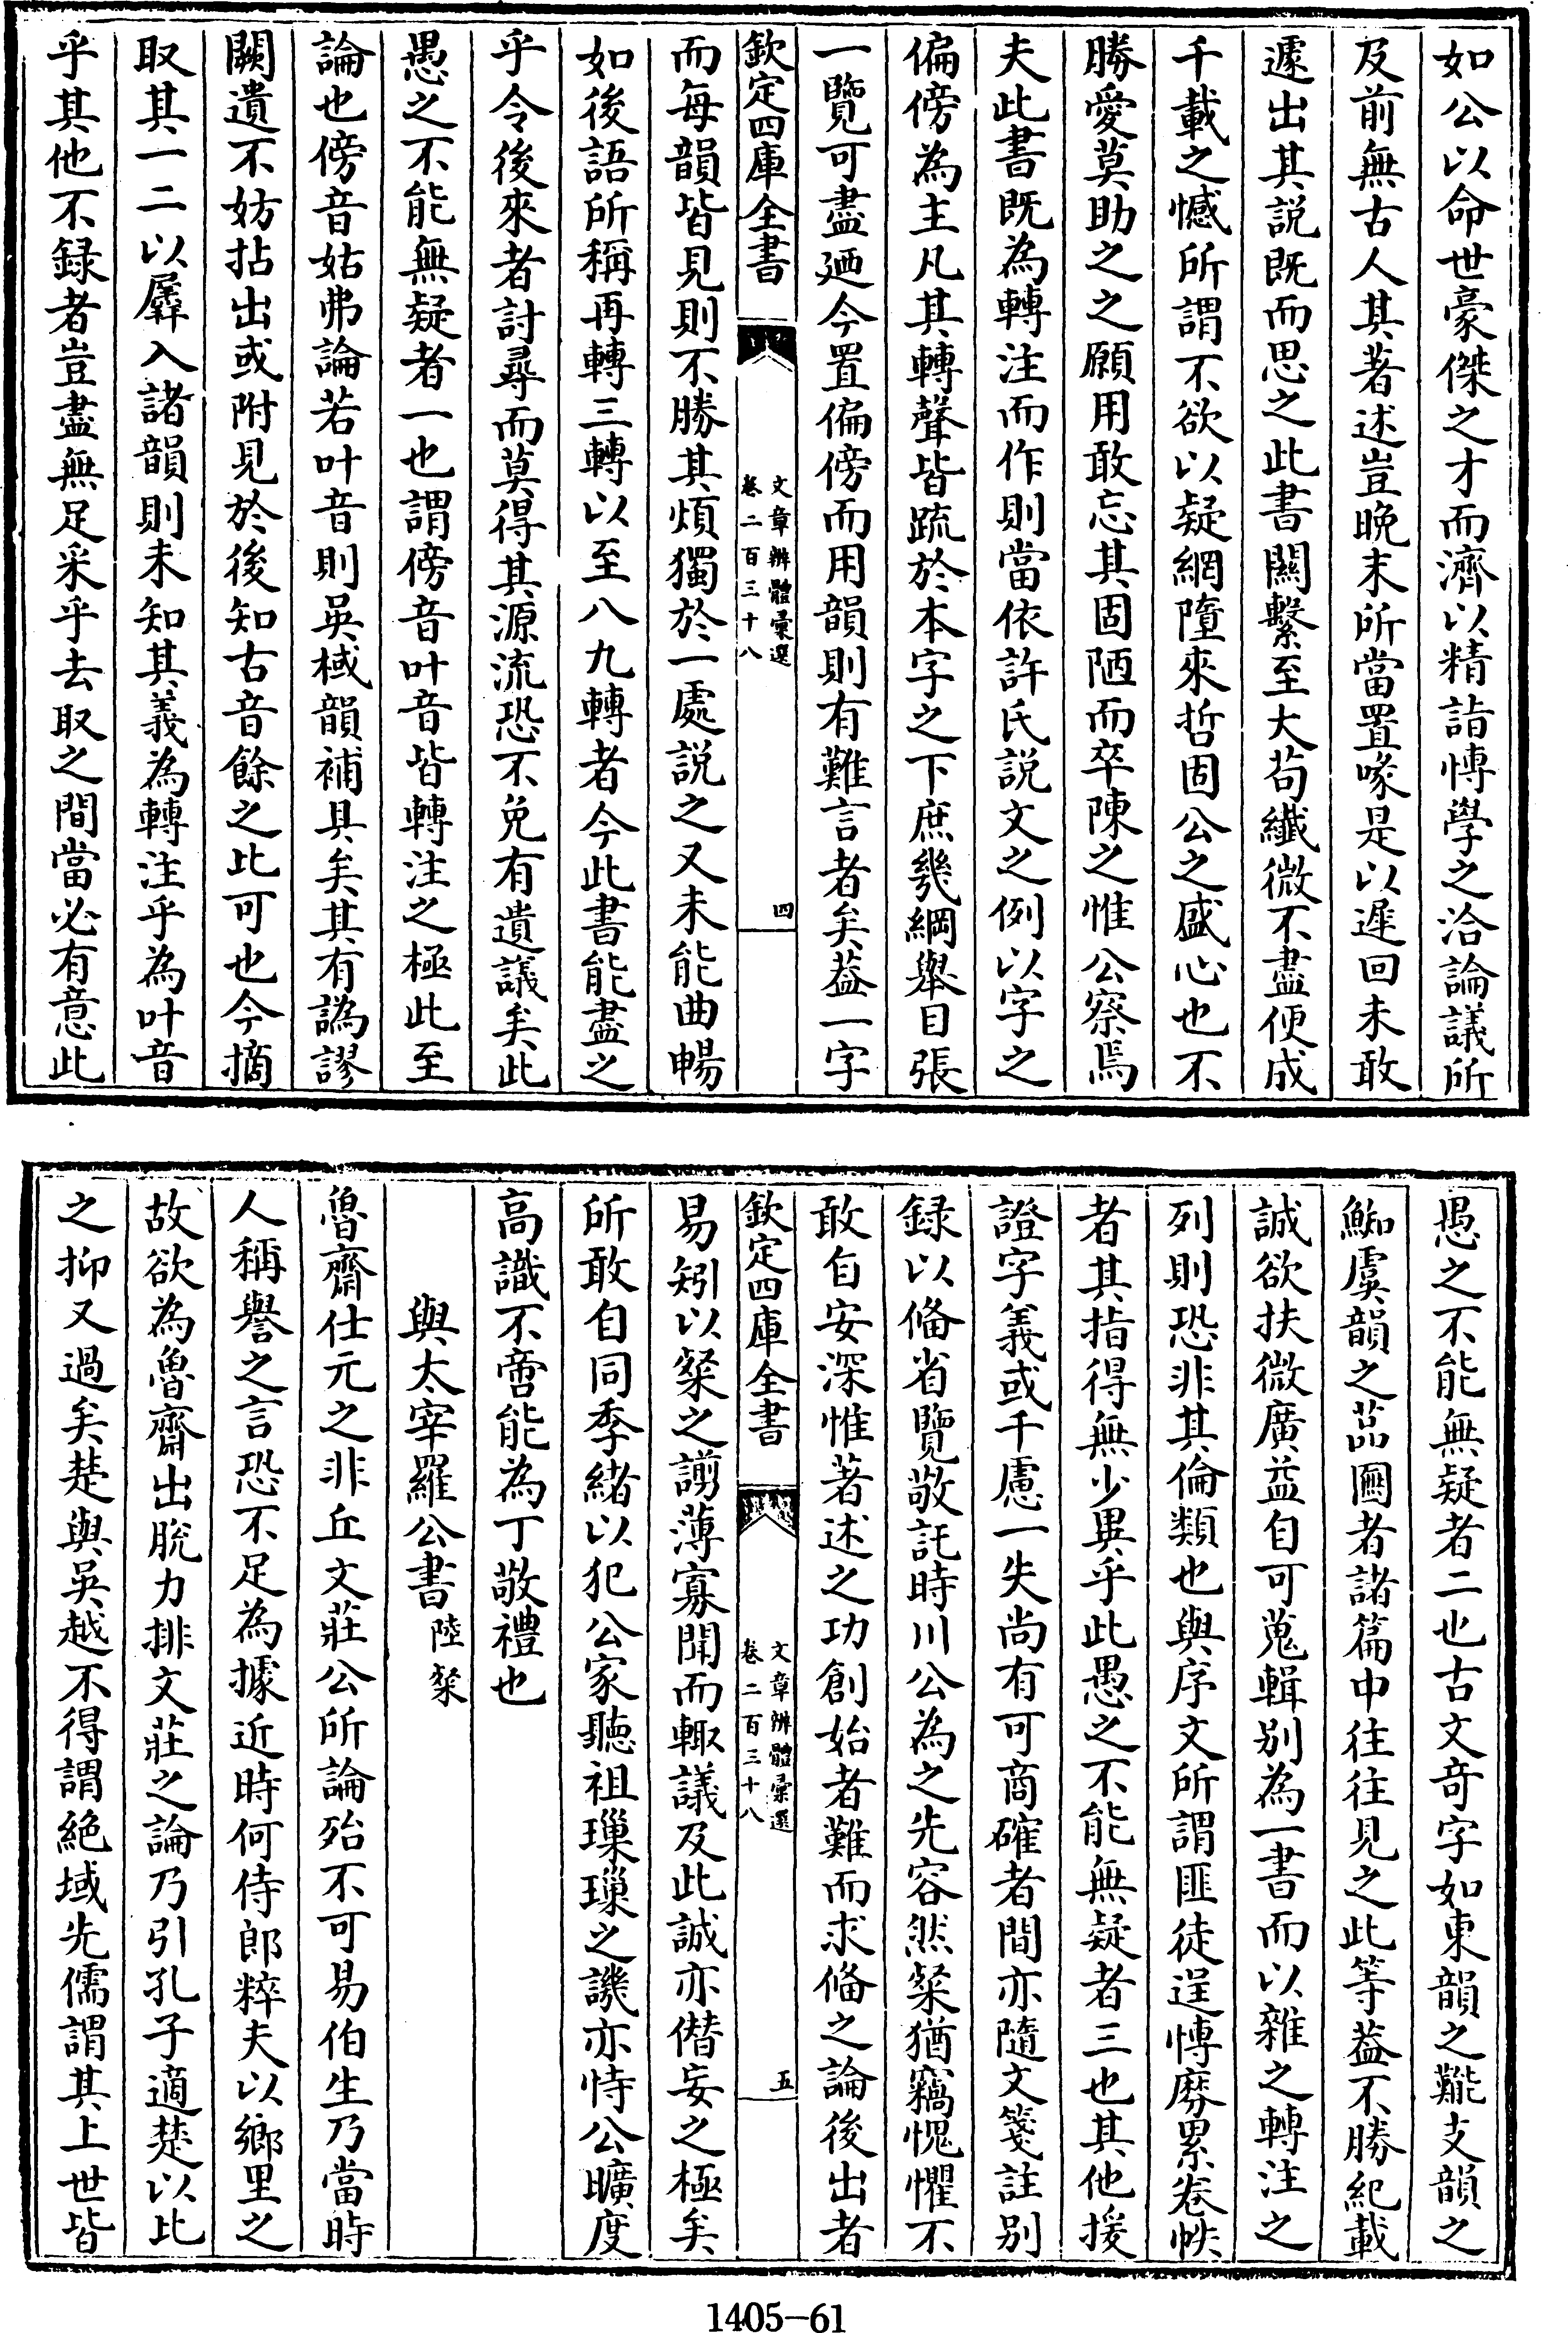 如公以命世豪傑之才而濟以精詣博學之洽論議所
及前無古人其著述豈晚末所當置喙是以遲回未敢
遽出其説既而思之此書關繫至大苟纎微不盡便成
千載之憾所謂不欲以疑網墮來哲固公之盛心也不
勝愛莫助之之願用敢忘其固陋而卒陳之惟公察焉
夫此書既為轉注而作則當依許氏説文之例以字之
偏傍為主凡其轉聲皆䟽於本字之下庶幾綱舉目張
一覽可盡廼今置偏傍而用韻則有難言者矣葢一字
欽定四庫全書
文章辨體彚選
卷二百三十八
四
而每韻皆見則不勝其煩獨於一處説之又未能曲暢
如後語所稱再轉三轉以至八九轉者今此書能盡之
乎令後來者討尋而莫得其源流恐不免有遺議矣此
愚之不能無疑者一也謂傍音叶音皆轉注之極此至
論也傍音姑弗論若叶音則吳棫韻補具矣其有譌謬
闕遺不妨拈出或附見於後知古音餘之此可也今摘
取其一二以羼入諸韻則未知其義為轉注乎為叶音
乎其他不録者豈盡無足采乎去取之間當必有意此
愚之不能無疑者二也古文竒字如東韻之䶲支韻之
䱥虞韻之𦯔圝者諸篇中往往見之此等葢不勝紀載
誠欲扶微廣益自可蒐輯别為一書而以雜之轉注之
列則恐非其倫類也與序文所謂匪徒逞博靡累卷帙
者其指得無少異乎此愚之不能無疑者三也其他援
證字義或千慮一失尚有可商確者間亦隨文箋註别
録以備省覽敬託時川公為之先容然粲猶竊愧懼不
敢自安深惟著述之功創始者難而求備之論後出者
欽定四庫全書
文章辨體彚選
卷二百三十八
五
易矧以粲之謭薄寡聞而輙議及此誠亦僭妄之極矣
所敢自同季緒以犯公家聽祖璅璅之譏亦恃公曠度
高識不啻能為丁敬禮也
與太宰羅公書 陸粲
魯齋仕元之非丘文莊公所論殆不可易伯生乃當時
人稱譽之言恐不足為據近時何侍郎粹夫以鄉里之
故欲為魯齋出脫力排文莊之論乃引孔子適楚以比
之抑又過矣楚與吳越不得謂絶域先儒謂其上世皆
1405-61